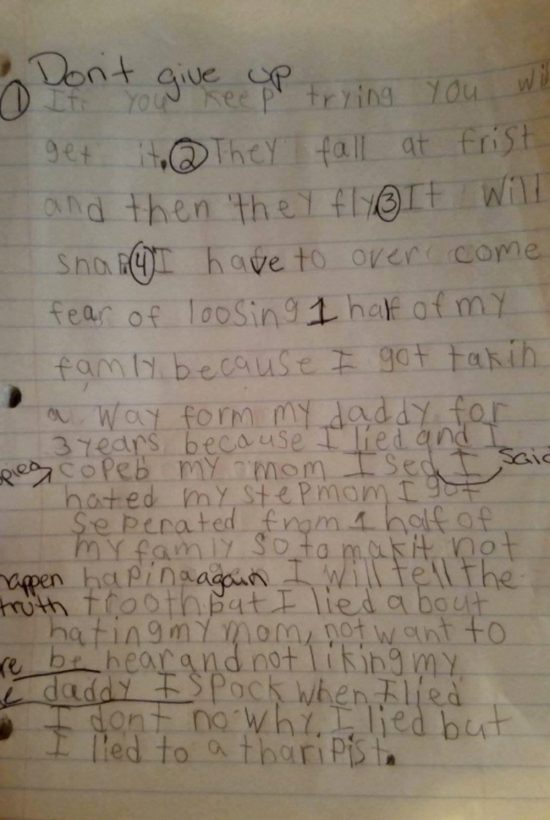 Don't give up
① If you keep trying you wil
get it. ② They fall at frist
and then they fly ③ It will
snap. ④ I have to over come
fear of loosing 1 half of my
famly because I got takin
a way form my daddy for
3 years because I lied and I
copeb my mom I sed I said
hated my stepmom I got
seperated from 1 half of
my famly so to mak it not
happen hapin again I will tell the
truth trooth but I lied about
hating my mom, not want to
re be hear and not liking my
daddy I spock when I lied
I dont no why I lied but
I lied to a tharipist.